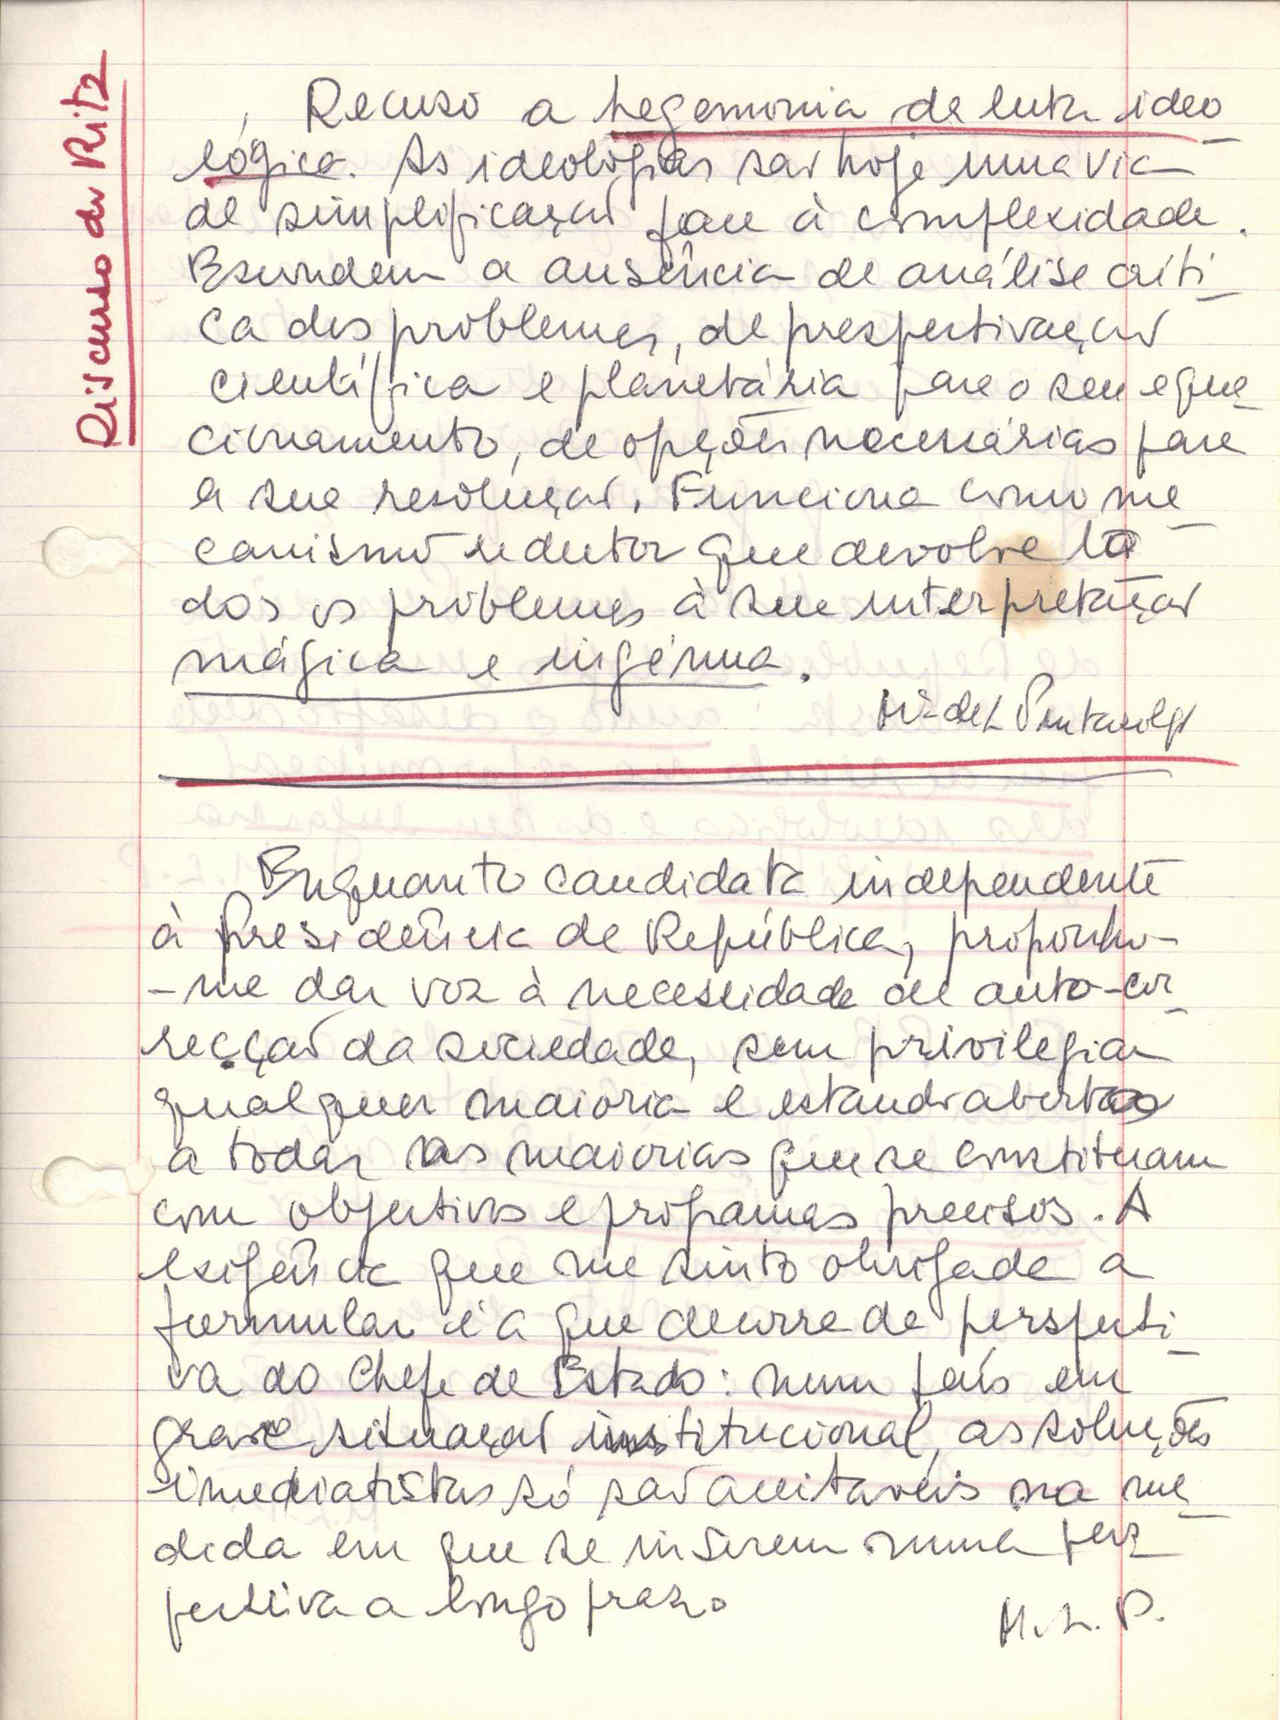 Discurso do Ritz
Recuso a hegemonia da luta ideo
lógica. As ideologias são hoje uma via
de simplificação face à complexidade.
Escondem a ausência de análise críti
ca dos problemas, de prespectivação
científica e planetária para o seu equa
cionamento, de opções necessárias para
a sua resolução. Funciona como me
canismo redutor que devolve to
dos os problemas à sua interpretação
mágica e ingénua.
Mª de L. Pintasilgo
Enquanto candidata independente
à Presidência da República, proponho-
-me dar voz à necessidade de auto-cor
recção da sociedade, sem privilegiar
qualquer maioria e estando aberta
a todas as maiorias que se constituam
com objectivos e programas precisos. A
exigência que me sinto obrigada a
formular é a que decorre da perspecti
va do Chefe de Estado: num país em
grave situação institucional, as soluções
imediatistas só são aceitáveis na me
dida em que se inserem numa pers
pectiva a longo prazo.
M. L. P.